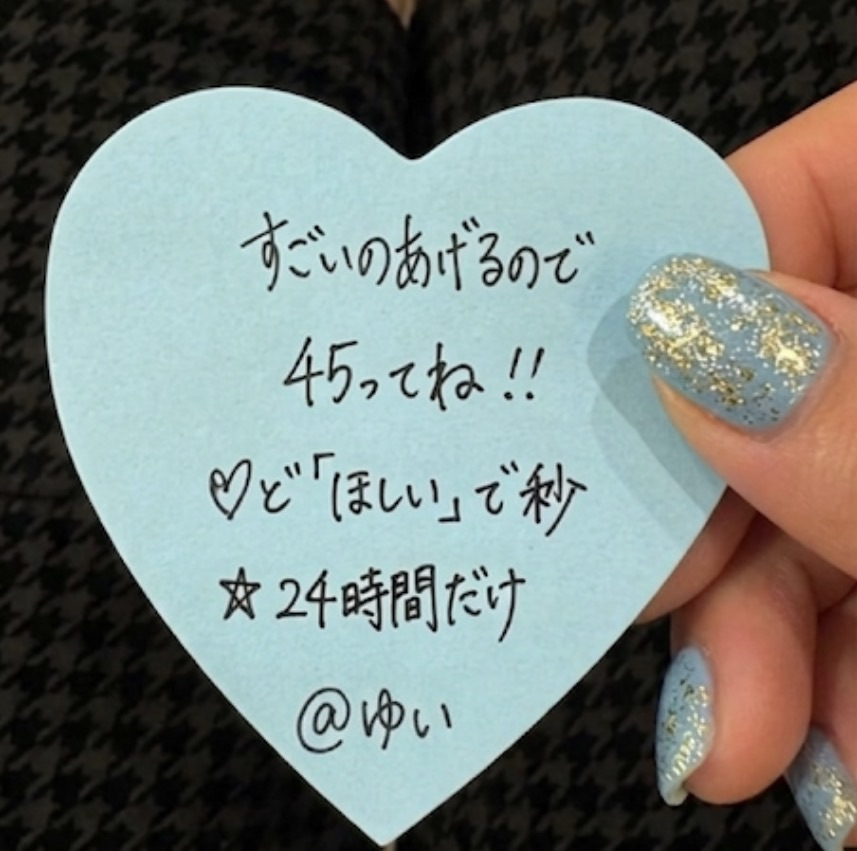 すごいのあげるので
45ってね!!
♡ど「ほしい」で秒
☆24時間だけ
@ゆい